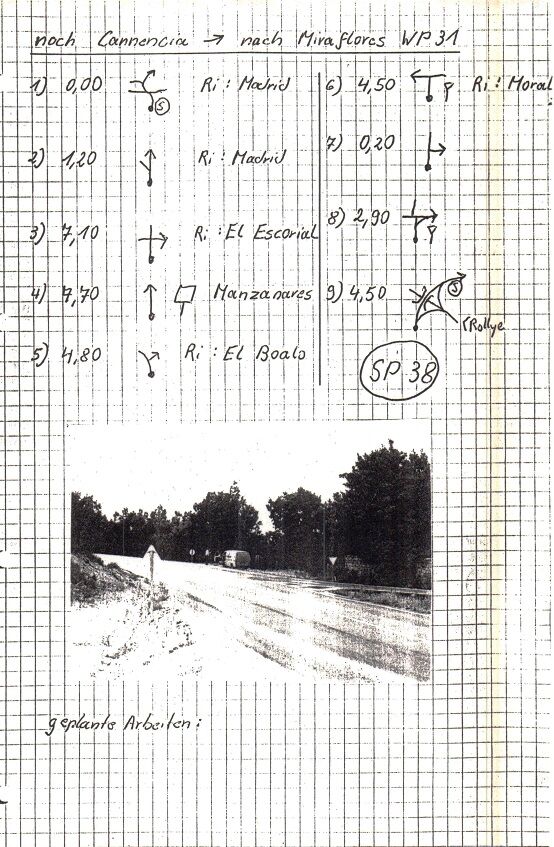 noch Cannencia → nach Miraflores WP 31
1) 0,00 S Ri: Madrid
2) 1,20 Ri: Madrid
3) 7,10 Ri: El Escorial
4) 7,70 Manzanares
5) 4,80 Ri: El Boalo
6) 4,50 Ri: Moral
7) 0,20
8) 2,90
9) 4,50 S
Rollye
SP 38
geplante Arbeiten: